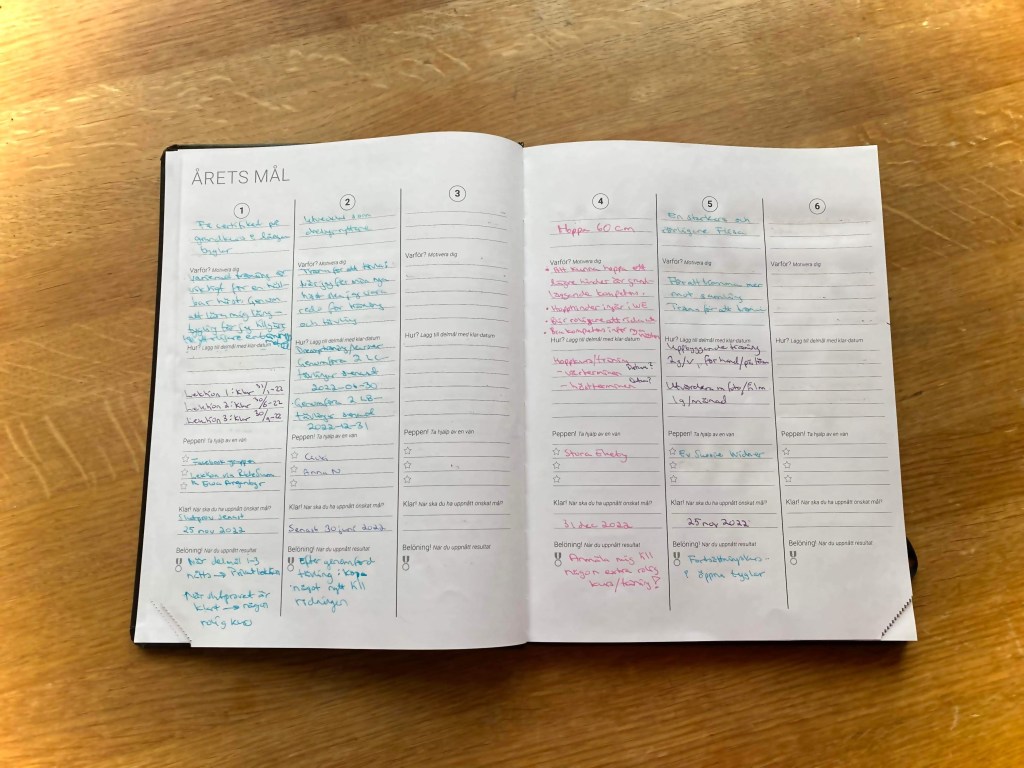 ÅRETS MÅL
1
på
grundkurs i
byglar
Varför? Motivera dig
träning är
viktigt för en
bar häst. Genom
att lära mig lång-
Hur? Lägg till delmål med klar-datum
Lektion 1: klar 31/1-22
Lektion 2: klar
Lektion 3: klar
Peppen! Ta hjälp av en vän
Facebook gruppen
Lektion via
Klar! När ska du ha uppnått önskat mål?
senast
25 nov 2022
Belöning! När du uppnått resultat
När delmål 1-3
När slutprovet är
klart → någon
rolig kurs
2
Utvecklas som
Varför? Motivera dig
Träna för att tävla i
När jag får min nya
häst ska jag vara
redo för träning
och tävling
Hur? Lägg till delmål med klar-datum
Genomföra 2 LC-
tävlingar senast
2022-06-30
Genomföra 2 LB-
tävlingar senast
2022-12-31
Peppen! Ta hjälp av en vän
Anna N
Klar! När ska du ha uppnått önskat mål?
Senast 30 juni 2022
Belöning! När du uppnått resultat
Efter genomförd
tävling: köpa
något nytt till
ridningen
3
Varför? Motivera dig
Hur? Lägg till delmål med klar-datum
Peppen! Ta hjälp av en vän
Klar! När ska du ha uppnått önskat mål?
Belöning! När du uppnått resultat
4
Hoppa 60 cm
Varför? Motivera dig
Att kunna hoppa ett
lägre hinder är grund-
läggande kompetens
Hopphinder ingår i WE
Blir roligare att rida ut
Bra kompetens inför nya
hästen
Hur? Lägg till delmål med klar-datum
Hoppkurs/träning
- vårterminen Datum?
- höstterminen Datum?
Peppen! Ta hjälp av en vän
Stora Ekeby
Klar! När ska du ha uppnått önskat mål?
31 dec 2022
Belöning! När du uppnått resultat
Anmäla mig till
någon extra rolig
kurs/träning?
5
En starkare och
Varför? Motivera dig
För att komma mer
mot samling
Träna för att
Hur? Lägg till delmål med klar-datum
Uppbyggande träning
2g/v, för hand/på
Utvärdera m foto/film
1g/månad
Peppen! Ta hjälp av en vän
Klar! När ska du ha uppnått önskat mål?
25 nov 2022
Belöning! När du uppnått resultat
Fortsättningskurs
i öppna byglar
6
Varför? Motivera dig
Hur? Lägg till delmål med klar-datum
Peppen! Ta hjälp av en vän
Klar! När ska du ha uppnått önskat mål?
Belöning! När du uppnått resultat